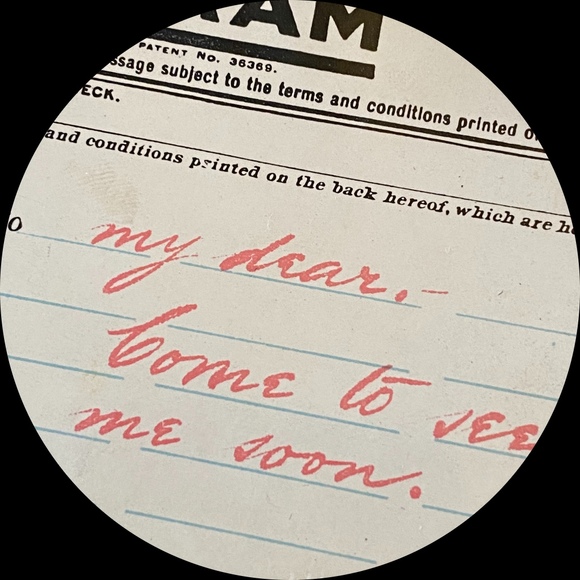 RAM
PATENT NO. 36369.
ssage subject to the terms and conditions printed o
ECK.
and conditions printed on the back hereof, which are h
O
my dear.-
Come to see
me soon.